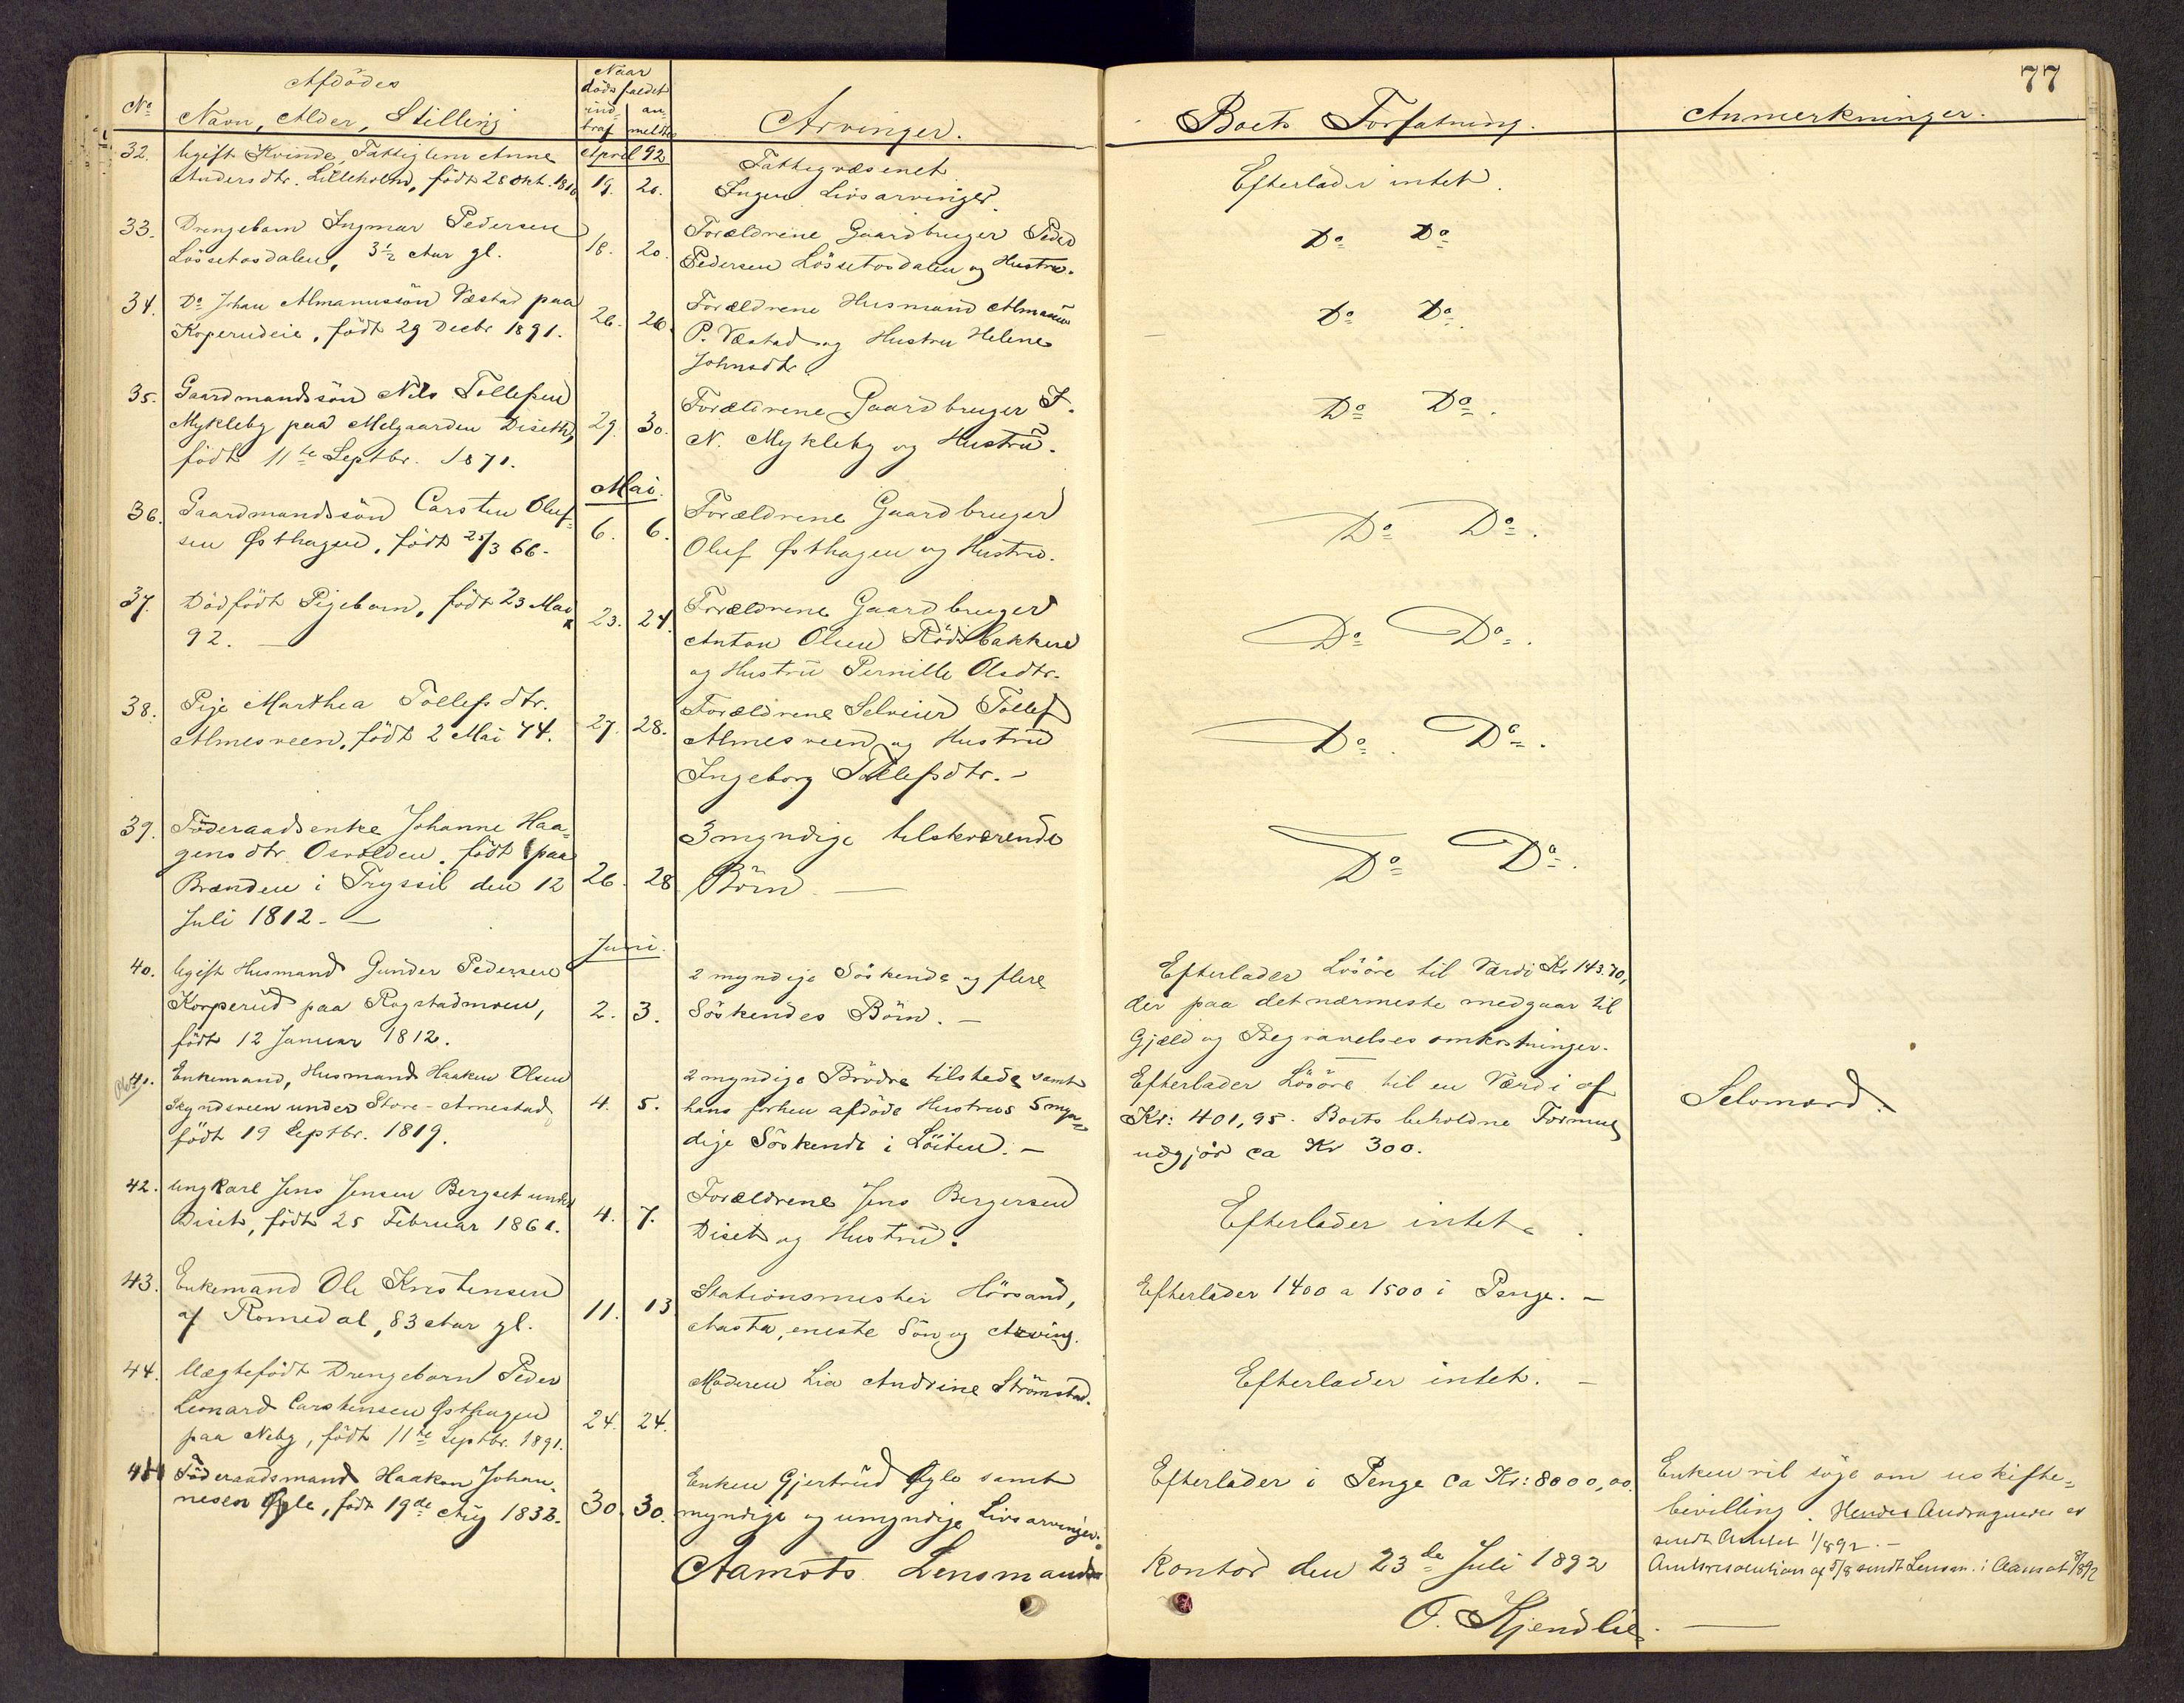 77
Afdödes
Naar
dödsfaldet
No
Navn, Alder, Stilling
ind-
traf
an-
meldtes
Arvinger.
Boets Forfatning.
Anmerkninger.
April 92
32. Ugift Kvinde, Fattiglem Anne
Andersdtr. Lilleholmd, födt 28 Okt. 1816
19. 20.
Fattigvæsenet
Ingen Livsarvinger.
Efterlader intet.
33. Drengebarn Ingmar Pedersen
Lössetosdalen, 3½ Aar gl.
18. 20.
Forældrene Gaardbruger Peder
Pedersen Lössetosdalen og Hustru.
Do Do
34. Do Johan Almanussön Væstad paa
Koperudeie, födt 29 Decbr 1891.
26. 26.
Forældrene Husmand Almanus
P. Væstad og Hustru Helene
Johnsdtr.
Do Do.
35. Gaardmandssön Nils Tollefsen
Mykleby paa Melgaarden Diseth,
födt 11te Septbr. 1871.
29. 30.
Forældrene Gaardbruger T.
N. Mykleby og Hustru.
Do Do.
Mai.
36. Gaardmandssön Carsten Oluf-
sen Østhagen, födt 25/3 66.
6. 6.
Forældrene Gaardbruger
Oluf Østhagen og Hustru.
Do Do.
37. Dödfödt Pigebarn, födt 23 Mai
92. —
23. 24.
Forældrene Gaardbruger
Anton Olsen Rödsbakken
og Hustru Pernille Olsdtr.
Do Do.
38. Pige Marthea Tollefsdtr.
Almesveen, födt 2 Mai 74.
27. 28.
Forældrene Selveier Tollef
Almesveen og Hustru
Ingeborg Tollefsdtr. –
Do. Do.
39. Föderaadsenke Johanne Haa-
gensdtr. Osvolden, födt paa
Brænden i Tryssil den 12
Juli 1812. —
26. 28
3 myndige tilstæværende
Börn. —
Do Do.
Juni.
40. Ugift Husmand Gunder Pedersen
Korperud paa Rogstadmoen,
födt 12 Januar 1812.
2. 3.
2 myndige Söskende og flere
Söskendes Börn. —
Efterlader Lösöre til Værdi Kr 143.70,
der paa det nærmeste medgaar til
Gjæld og Begravelsesomkostninger.
41. Enkemand, Husmand Haaken Olsen
Skyndsveen under Store-Arnestad
födt 19 Septbr. 1819.
4. 5.
2 myndige Brödre tilstede samt
hans forhen afdöde Hustrus 5 myn-
dige Söskende i Löiten. —
Efterlader Lösöre til en Værdi af
Kr: 401,95. Boets beholdne Formue
udgjör ca Kr 300.
Selvmord.
42. Ungkarl Jens Jensen Bergset under
Diset, födt 25 Februar 1861.
4. 7.
Forældrene Jens Bergersen
Diset og Hustru.
Efterlader intet.
43. Enkemand Ole Kristensen
af Romedal, 83 Aar gl.
11. 13
Stationsmester Hörsand,
Aasta, eneste Sön og Arving.
Efterlader 1400 a 1500 i Penge. –
44. Uægtefödt Drengebarn Peder
Leonard Carstensen Østhagen
paa Neby, födt 11te Septbr. 1891.
24. 24.
Moderen Lia Andrine Strömstad.
Efterlader intet. –
Föderaadsmand Haakon Johan-
nesen Ygle, födt 19de Aug 1833.
30. 30.
Enken Gjertrud Ygle samt
myndige og umyndige Livsarvinger.
Efterlader i Penge ca Kr: 8000,00.
Enken vil söge om uskifte-
bevilling. Hendes Andragende er
sendt Amtet 1/8 92. —
Amtsresolution af 5/8 sendt Lensm. i Aamot 8/8 92
Aamots Lensmands
Kontor den 23de Juli 1892
O. Kjendlie.